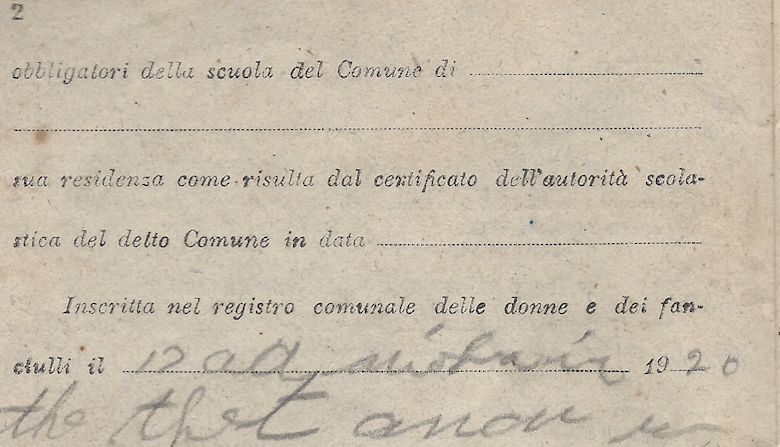 2
obbligatori della scuola del Comune di
sua residenza come risulta dal certificato dell'autorità scola-
stica del detto Comune in data
Inscritta nel registro comunale delle donne e dei fan-
ciulli il 19 20
the